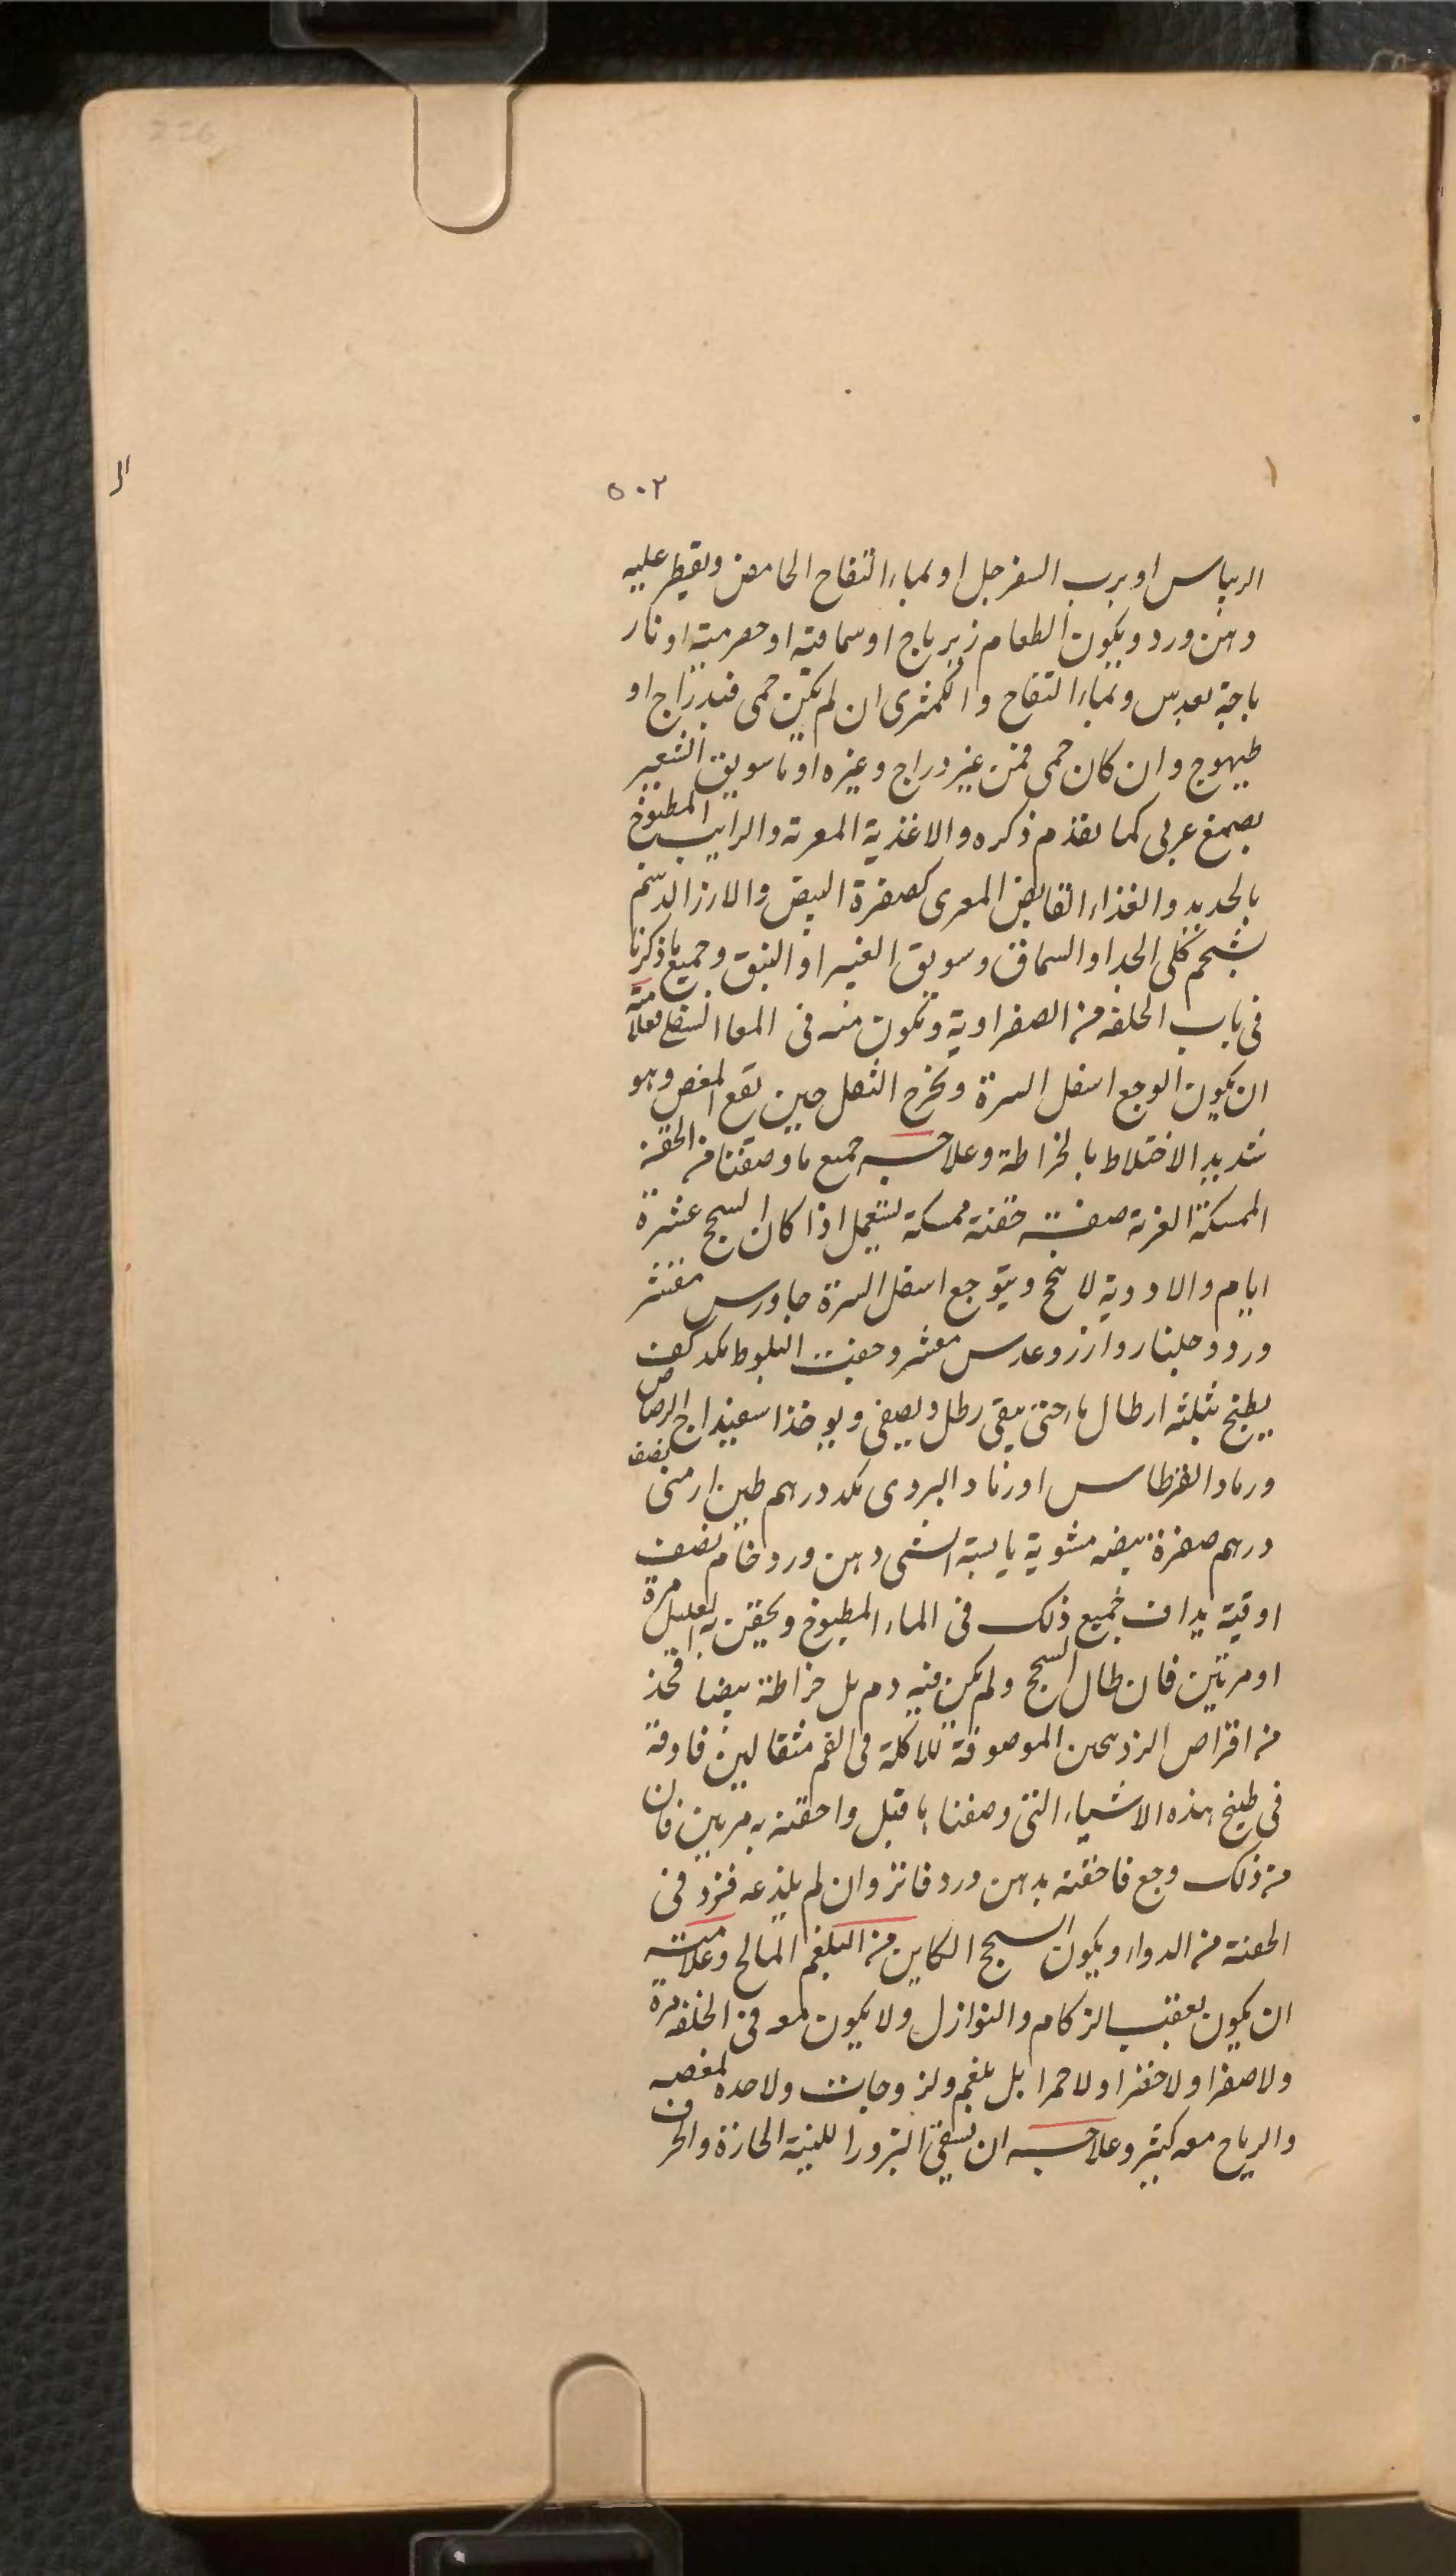 226
٥٠٢
الریباس او برب السفرجل او بماء التفاح الحامض ویقطر علیه
دهن ورد ویکون الطعام زیرباج او سماقیة او حصرمیة او نار
باجة بعدس وبماء التفاح والکمثری ان لم یکن حمی فبدراج او
طیهوج وان کان حمی فمن غیر دراج وغیره او ماسویق الشعیر
بصمغ عربی کما تقدم ذکره والاغذیة المغریة والرایب المطبوخ
بالحدید والغذاء القابض المغری کصفرة البیض والارز الدسم
بشحم کلی الجدا والسماق وسویق الغبیرا والنبق وجمیع ماذکرنا
فی باب الخلفه من الصفراویة وتکون منه فی المعا السفلی فعلامته
ان یکون الوجع اسفل السرة ویخرج الثفل حین یقع المغص وهو
شدید الاختلاط بالخراطة وعلاجه جمیع ماوصفنا من الحقنه
الممسکة المغریة صفة حقنة ممسکة تستعمل اذا کان السحج عشرة
ایام والادویة لا تنجح ویتوجع اسفل السرة جاورس مقشر
ورد وجلنار وارز وعدس مقشر وجفت البلوط مکد کف
یطبخ بثلثه ارطال ماء حتی یبقی رطل ویصفی ویوخذ اسفیداج الرصاص
ورماد القرطاس او رماد البردی مکد درهم طین ارمنی نصف
درهم صفرة بیضه مشویة یابسة الشی دهن ورد خام نصف
اوقیة یداف جمیع ذلک فی الماء المطبوخ ویحقن به العلیل مرة
او مرتین فان طال السحج ولم یکن فیه دم بل خراطة بیضا فخذ
من اقراص الزرنیخین الموصوفة للاکلة فی الفم مثقالین فادفه
فی طبیخ هذه الاشیاء التی وصفنا ما قبل واحقنه به مرتین فان
من ذلک وجع فاحقنه بدهن ورد فاتر وان لم یلذعه فزد فی
الحقنة من الدواء ویکون السحج الکاین من البلغم المالح وعلامته
ان یکون بعقب الزکام والنوازل ولا یکون معه فی الخلفه مرة
ولا صفرا ولا خضرا ولا حمرا بل بلغم ولزوجات ولا حدة لمغصه
والریاح معه کثیر وعلاجه ان یسقی البزور اللینة الحارة والحرف